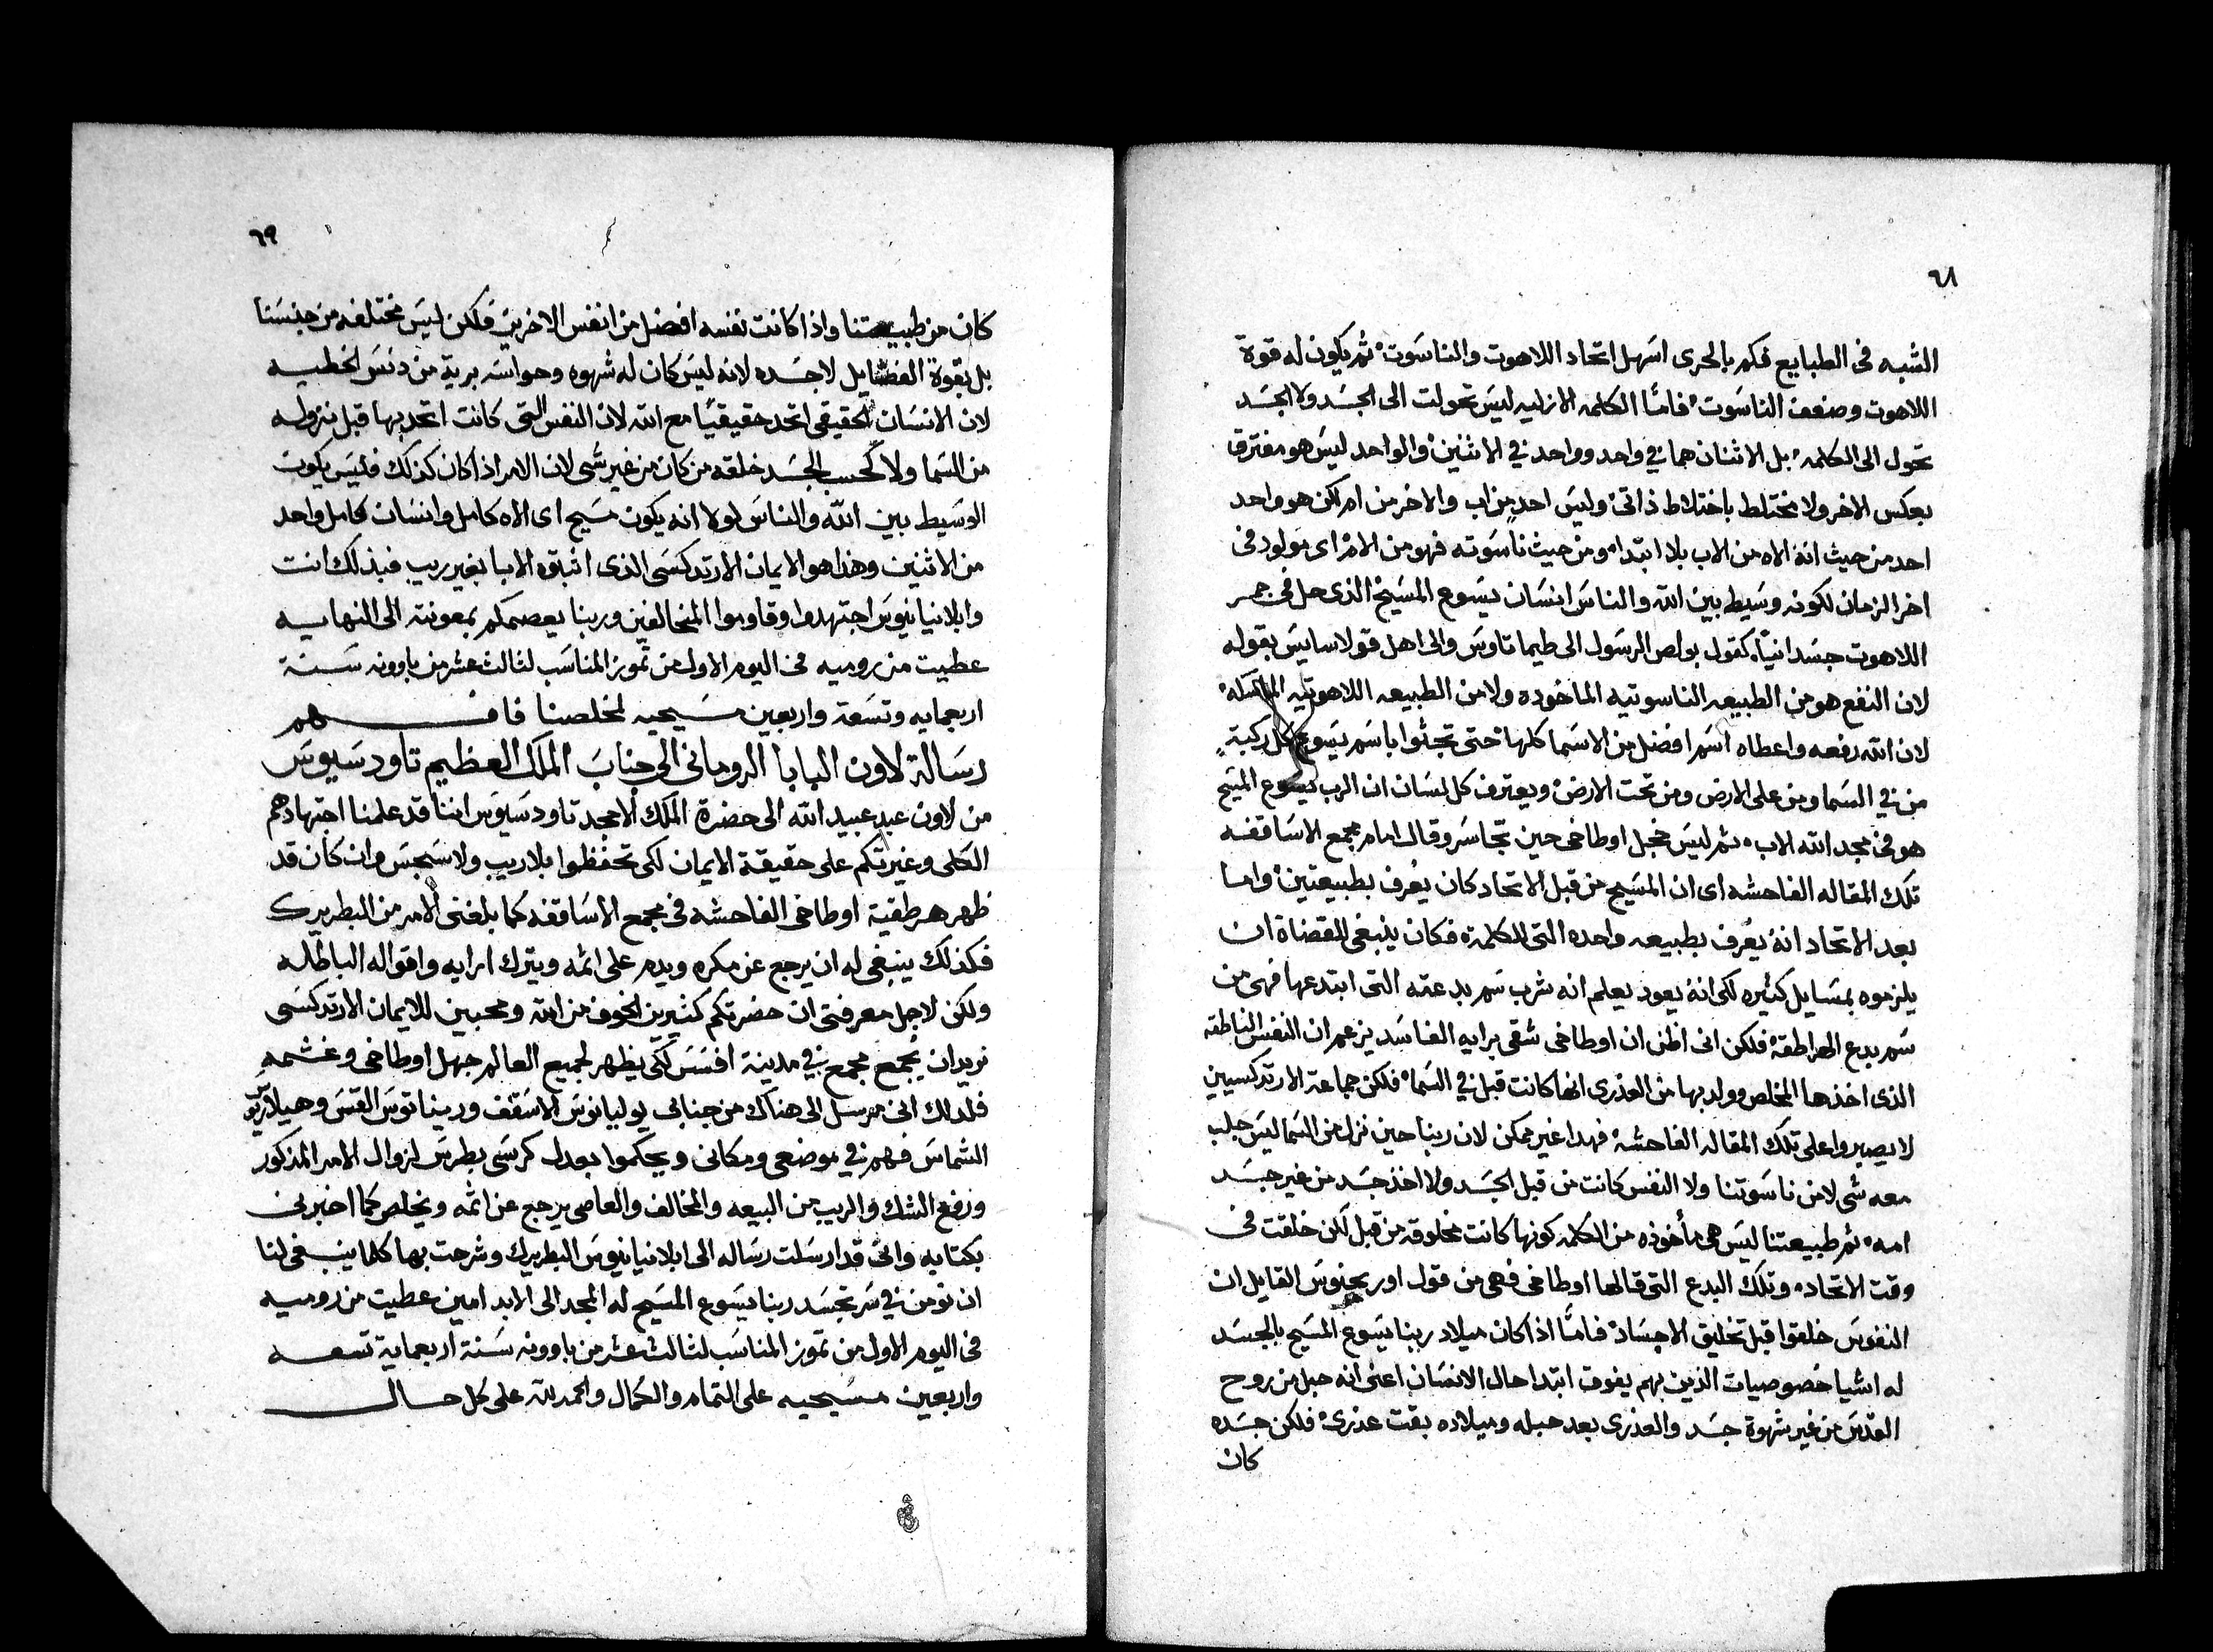 ٦٨
الشبه فى الطبايع فكم بالحرى اسهل اتحاد اللاهوت والناسوت ثم يكون له قوة
اللاهوت وضعف الناسوت فامّا الكلمه الازليه ليس تحولت الى الجسد ولا الجسد
تحول الى الكلمه بل الاثنان هما في واحد وواحد في الاثنين والواحد ليس هو مفترق
بعكس الاخر ولا مختلط باختلاط ذاتى وليس احدٍ من اب والاخر من ام لكن هو واحد
احد من حيث انه الاه من الاب بلا ابتدا ومن حيث ناسوته فهو من الام اى مولود فى
اخر الزمان لكونه وسيط بين الله والناس انسان يسوع المسيح الذى حل فى
اللاهوت جسدانيًا كقول بولص الرسول الى طيماتاوس والى اهل قولاسايس بقوله
لان النفع هو من الطبيعه الناسوتيه الماخوده ولا من الطبيعه اللاهوتيه
لان الله رفعه واعطاه اسم افضل من الاسما كلها حتى تجثوا باسم يسوع كل ركبةٍ
من في السما ومن على الارض ومن تحت الارض ويعترف كل لسان ان الرب يسوع المسيح
هو فى مجد الله الاب ثم ليس خجل اوطاخى حين تجاسر وقال امام مجمع الاساقفه
تلك المقاله الفاحشه اى ان المسيح من قبل الاتحاد كان يعُرف بطبيعتين واما
بعد الاتحاد انه يعُرف بطبيعه واحده التى للكلمة فكان ينبغى للقضاة ان
يلزموه بمسايل كثيره لكى انه يعود يعلم انه شرب سم بدعته التى ابتدعها فهى من
سم بدع الهراطقة فلكن انى اظن ان اوطاخى شقى برايه الفاسد يزعم ان النفس الناطقه
الذى اخذها المخلص وولد بها من العذرى انها كانت قبل في السما فلكن جماعة الارتدكسيين
لا يصيروا على تلك المقاله الفاحشه فهدا غير ممكن لان ربنا حين نزل من السما ليس جلب
معه شى لا من ناسوتنا ولا النفس كانت من قبل الجسد ولا اخذ جسد من غير جسد
امه ثم طبيعتنا ليس هى مأخوذه من الكلمه كونها كانت مخلوقه من قبل لكن خلقت فى
وقت الاتحاد وتلك البدع التى قالها اوطاخى فهى من قول اوريجنوس القايل ان
النفوس خلقوا قبل تخليق الاجساد فامّا اذا كان ميلاد ربنا يسوع المسيح بالجسد
له اشيا خصوصيات الذين بهم يفوق ابتدا حال الانسان اعنى انه حبل من روح
القدس من غير شهوة جسد والعذرى بعد حبله وميلاده بقت عذرى فلكن جسده
كان
٦٩
كان من طبيعتنا واذا كانت نفسه افضل من انفس الاخرين فلكن ليس مختلفه من جنسنا
بل بقوة الفضايل لا جسده لانه ليس كان له شهوه وحواسه برية من دنس الخطيه
لان الانسان الحقيقى اتحد حقيقيًا مع الله لان النفس التى كانت اتحد بها قبل نزوله
من السما ولا كحسب الجسد خلقه من كان من غير شى لان الامر اذا كان كذلك فليس يكون
الوسيط بين الله والناس لولا انه يكون مسيح اى الاه كامل وانسان كامل واحد
من الاثنين وهذا هو الايمان الارتدكسى الذى اثبتوه الابا بغير ريب فبذلك انت
وابلانيانيوس اجتهدوا وقاوموا المخالفين وربنا يعصمكم بمعونته الى النهايه
عطيت من روميه فى اليوم الاول من تموز المناسب لثالث عشر من باوونه سنة
اربعمايه وتسعة واربعين مسيحيه لمخلصنا فافهم
رسالة لاون البابا الرومانى الى جناب الملك العظيم تاودسيوس
من لاون عبد عبيد الله الى حضرة الملك الامجد تاودسيوس اننا قد علمنا اجتهادهم
الكلى وغيرتكم على حقيقة الايمان لكى تحفظوا بلا ريب ولا سجس وان كان قد
ظهر هرطقية اوطاخى الفاحشه فى مجمع الاساقفه كما بلغنى الامر من البطريرك
فكذلك ينبغى له ان يرجع عن مكره ويدم على اثمه ويترك ارايه واقواله الباطله
ولكن لاجل معرفتى ان حضرتكم كثيرين الخوف من الله ومحبين للايمان الارتدكسى
نريد ان يُجمع مجمع في مدينة افسس لكى يظهر لجميع العالم جهل اوطاخى وغشمه
فلدلك انى مرسل الى هناك من جنابى يوليانوس الاسقف وريناتوس القس وهيلاريوس
الشماس فهم في موضعى ومكانى ويحكموا بعدل كرسى بطرس لزوال الامر المذكور
ورفع الشك والريب من البيعه والمخالف والعاصى يرجع عن اثمه ويخلص كما اخبرنى
بكتابه وانى قد ارسلت رساله الى ابلانيانيوس البطريرك وشرحت بها كلما ينبغى لنا
ان نومن في سر تجسد ربنا يسوع المسيح له المجد الى الابد امين عطيت من روميه
فى اليوم الاول من تموز المناسب لثالث عشر من باوونه سنة اربعماية تسعه
واربعين مسيحيه على التمام والكمال والحمد لله على كل حال